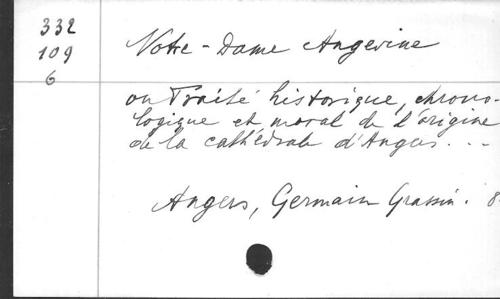 332
109
6
Notre-Dame Angevine
ou Traité historique, chrono-
logique et moral de l'origine
de la cathédrale d'Angers...
Angers, Germain Grassin. 8